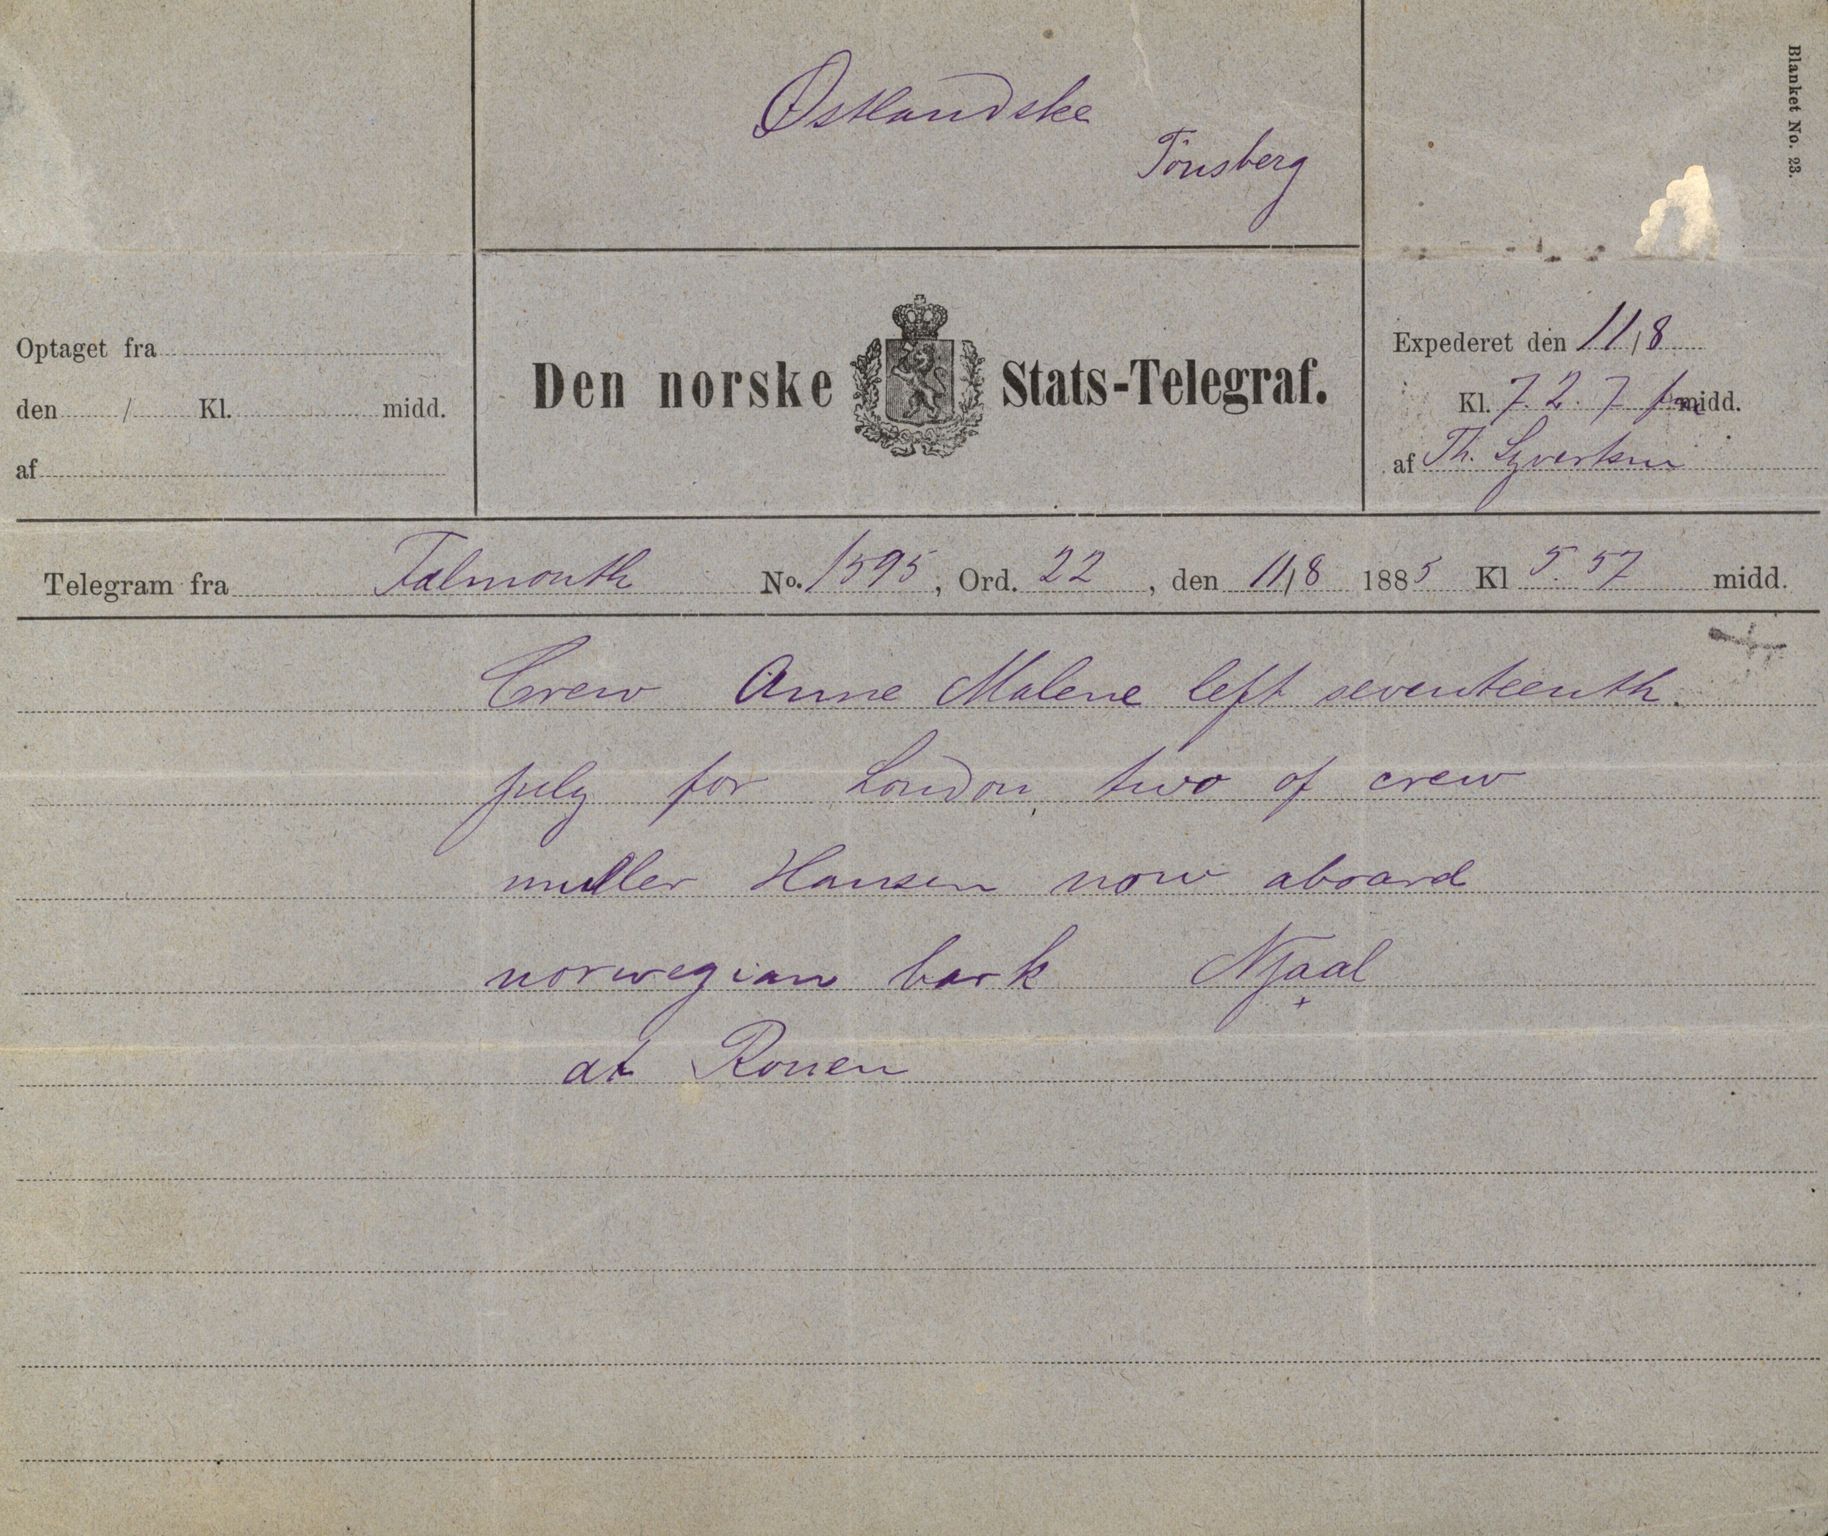 Østlandske
Tönsberg
Blanket No. 23.
Optaget fra
den / Kl. midd.
af
Den norske Stats-Telegraf.
Expederet den 11/8
Kl. 7. 2. 7 pm midd.
af Th. Syvertsen
Telegram fra Falmouth No. 1595, Ord. 22, den 11/8 1885 Kl 5.57 midd.
Crew Anne Malene left seventeenth.
july for London two of crew
muller Hansen now aboard
norwegian bark Njaal
at Rouen